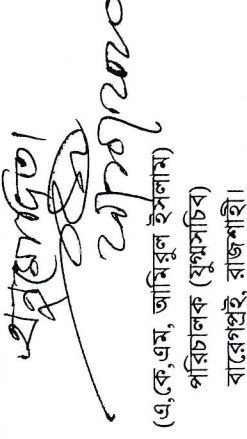 অনুমোদিত।
(এ,কে,এম, আমিরুল ইসলাম)
পরিচালক (যুগ্মসচিব)
বারেগপ্রই, রাজশাহী।